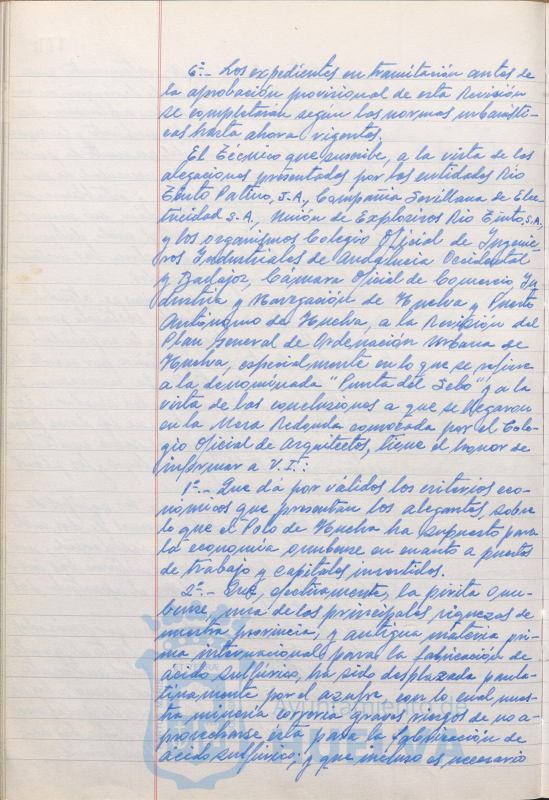 6º.- Los expedientes en tramitación antes de
la aprobación provisional de esta Revisión
se completarán según las normas urbanísti-
cas hasta ahora vigentes.
El Técnico que suscribe, a la vista de las
alegaciones presentadas por las entidades Rio
Tinto Patiño, S.A., Compañia Sevillana de Elec-
tricidad S.A., Unión de Explosivos Rio Tinto, S.A,
y los organismos Colegio Oficial de Ingenie-
ros Industriales de Andalucia Occidental
y Badajoz, Cámara Oficial de Comercio, In-
dustria y Navegación de Huelva y Puerto
Autónomo de Huelva, a la Revisión del
Plan General de Ordenación Urbana de
Huelva, especialmente en lo que se refiere
a la denominada "Punta del Sebo" y a la
vista de las conclusiones a que se llegaron
en la Mesa Redonda convocada por el Cole-
gio Oficial de Arquitectos, tiene el honor de
informar a V.I.:
1º.- Que dá por válidos los criterios eco-
nómicos que presentan los alegantes, sobre
lo que el Polo de Huelva ha supuesto para
la economía onubense en cuanto a puestos
de trabajo y capitales invertidos.
2º.- Que, efectivamente, la pirita onu-
bense, una de las principales riquezas de
nuestra provincia, y antigua materia pri-
ma internacional para la fabricación de
ácido sulfúrico, ha sido desplazada paula-
tinamente por el azufre, con lo cual nues-
tra minería correría graves riesgos de no a-
provecharse esta para la fabricación de
ácido sulfúrico; y que incluso es necesario
Ayuntamiento de
HUELVA